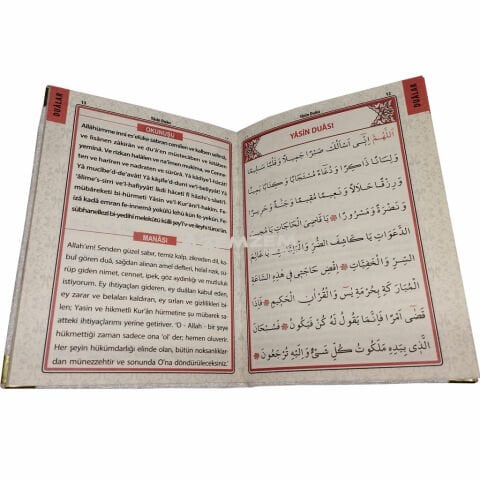 DUÂLAR
13
Yâsîn Duâsı
OKUNUŞU
Allâhümme innî es'elüke sabran cemîlen ve kalben selîmâ,
ve lisânen zâkiran ve duâ'en müstecâben ve kitâben
yemînâ. Ve rizkan halâlen ve na'îmen mukîma, ve Cenne-
ten ve harîran ve nadraten ve sürûrâ. Yâ kâdiye'l-hâcâti
Yâ mucîbe'd-de'avâti! Yâ kâşife'd-durri ve'l-beliyyâti! Yâ
'âlime's-sirri ve'l-hafiyyâti! İkdi hâcetî fî hâzihi's-sâati'l
mübâreketi bi-hürmeti Yâsîn ve'l-Kur'âni'l-hakîm. Fe
izâ kadâ emran fe-innemâ yekûlü lehû kün fe-yekûn. Fe
sübhanellezî bi-yedihî melekûtü külli şey'iv ve ileyhi türceûn.
MANÂSI
Allah'ım! Senden güzel sabır, temiz kalp, zikreden dil, ka-
bul gören duâ, sağdan alınan amel defteri, helal rızık, sü-
rüp giden nimet, cennet, ipek, endam güzelliği ve mutluluk
istiyorum. Ey ihtiyaçları gideren, ey duâları kabul eden,
ey zarar ve belaları kaldıran, ey sırları ve gizlilikleri bi-
len; Yasin ve hikmetli Kur'ân hürmetine şu mübarek sa-
atteki ihtiyaçlarımı yerine getiriver. 'O - Allah - bir şeye
hükmettiği zaman sadece ona 'ol' der; hemen oluverir.
Her şeyin hükümdarlığı elinde olan, bütün noksanlıklar
dan münezzehtir ve sonunda O'na döndürüleceksiniz.'
12
Yâsîn Duâsı
DUÂLAR
YÂSÎN DUÂSI
اَللّٰهُمَّ اِنّٖى اَسْاَلُكَ صَبْرًا جَمٖيلًا وَقَلْبًا سَلٖيمًا
وَلِسَانًا ذَاكِرًا وَدُعَاءً مُسْتَجَابًا وَكِتَابًا يَمٖينًا
وَرِزْقًا حَلَالًا وَنَعٖيمًا مُقٖيمًا وَجَنَّةً وَحَرٖيرًا
وَنَضْرَةً وَسُرُورًا يَا قَاضِىَ الْحَاجَاتِ يَا مُجٖيبَ
الدَّعَوَاتِ يَا كَاشِفَ الضُّرِّ وَالْبَلِيَّاتِ يَا عَالِمَ
السِّرِّ وَالْخَفِيَّاتِ اِقْضِ حَاجَتٖى فٖى هٰذِهِ السَّاعَةِ
الْمُبَارَكَةِ بِحُرْمَةِ يٰسٓ وَالْقُرْاٰنِ الْحَكٖيمِ فَاِذَا
قَضٰى اَمْرًا فَاِنَّمَا يَقُولُ لَهُ كُنْ فَيَكُونُ فَسُبْحَانَ
الَّذٖى بِيَدِهٖ مَلَكُوتُ كُلِّ شَىْءٍ وَاِلَيْهِ تُرْجَعُونَ